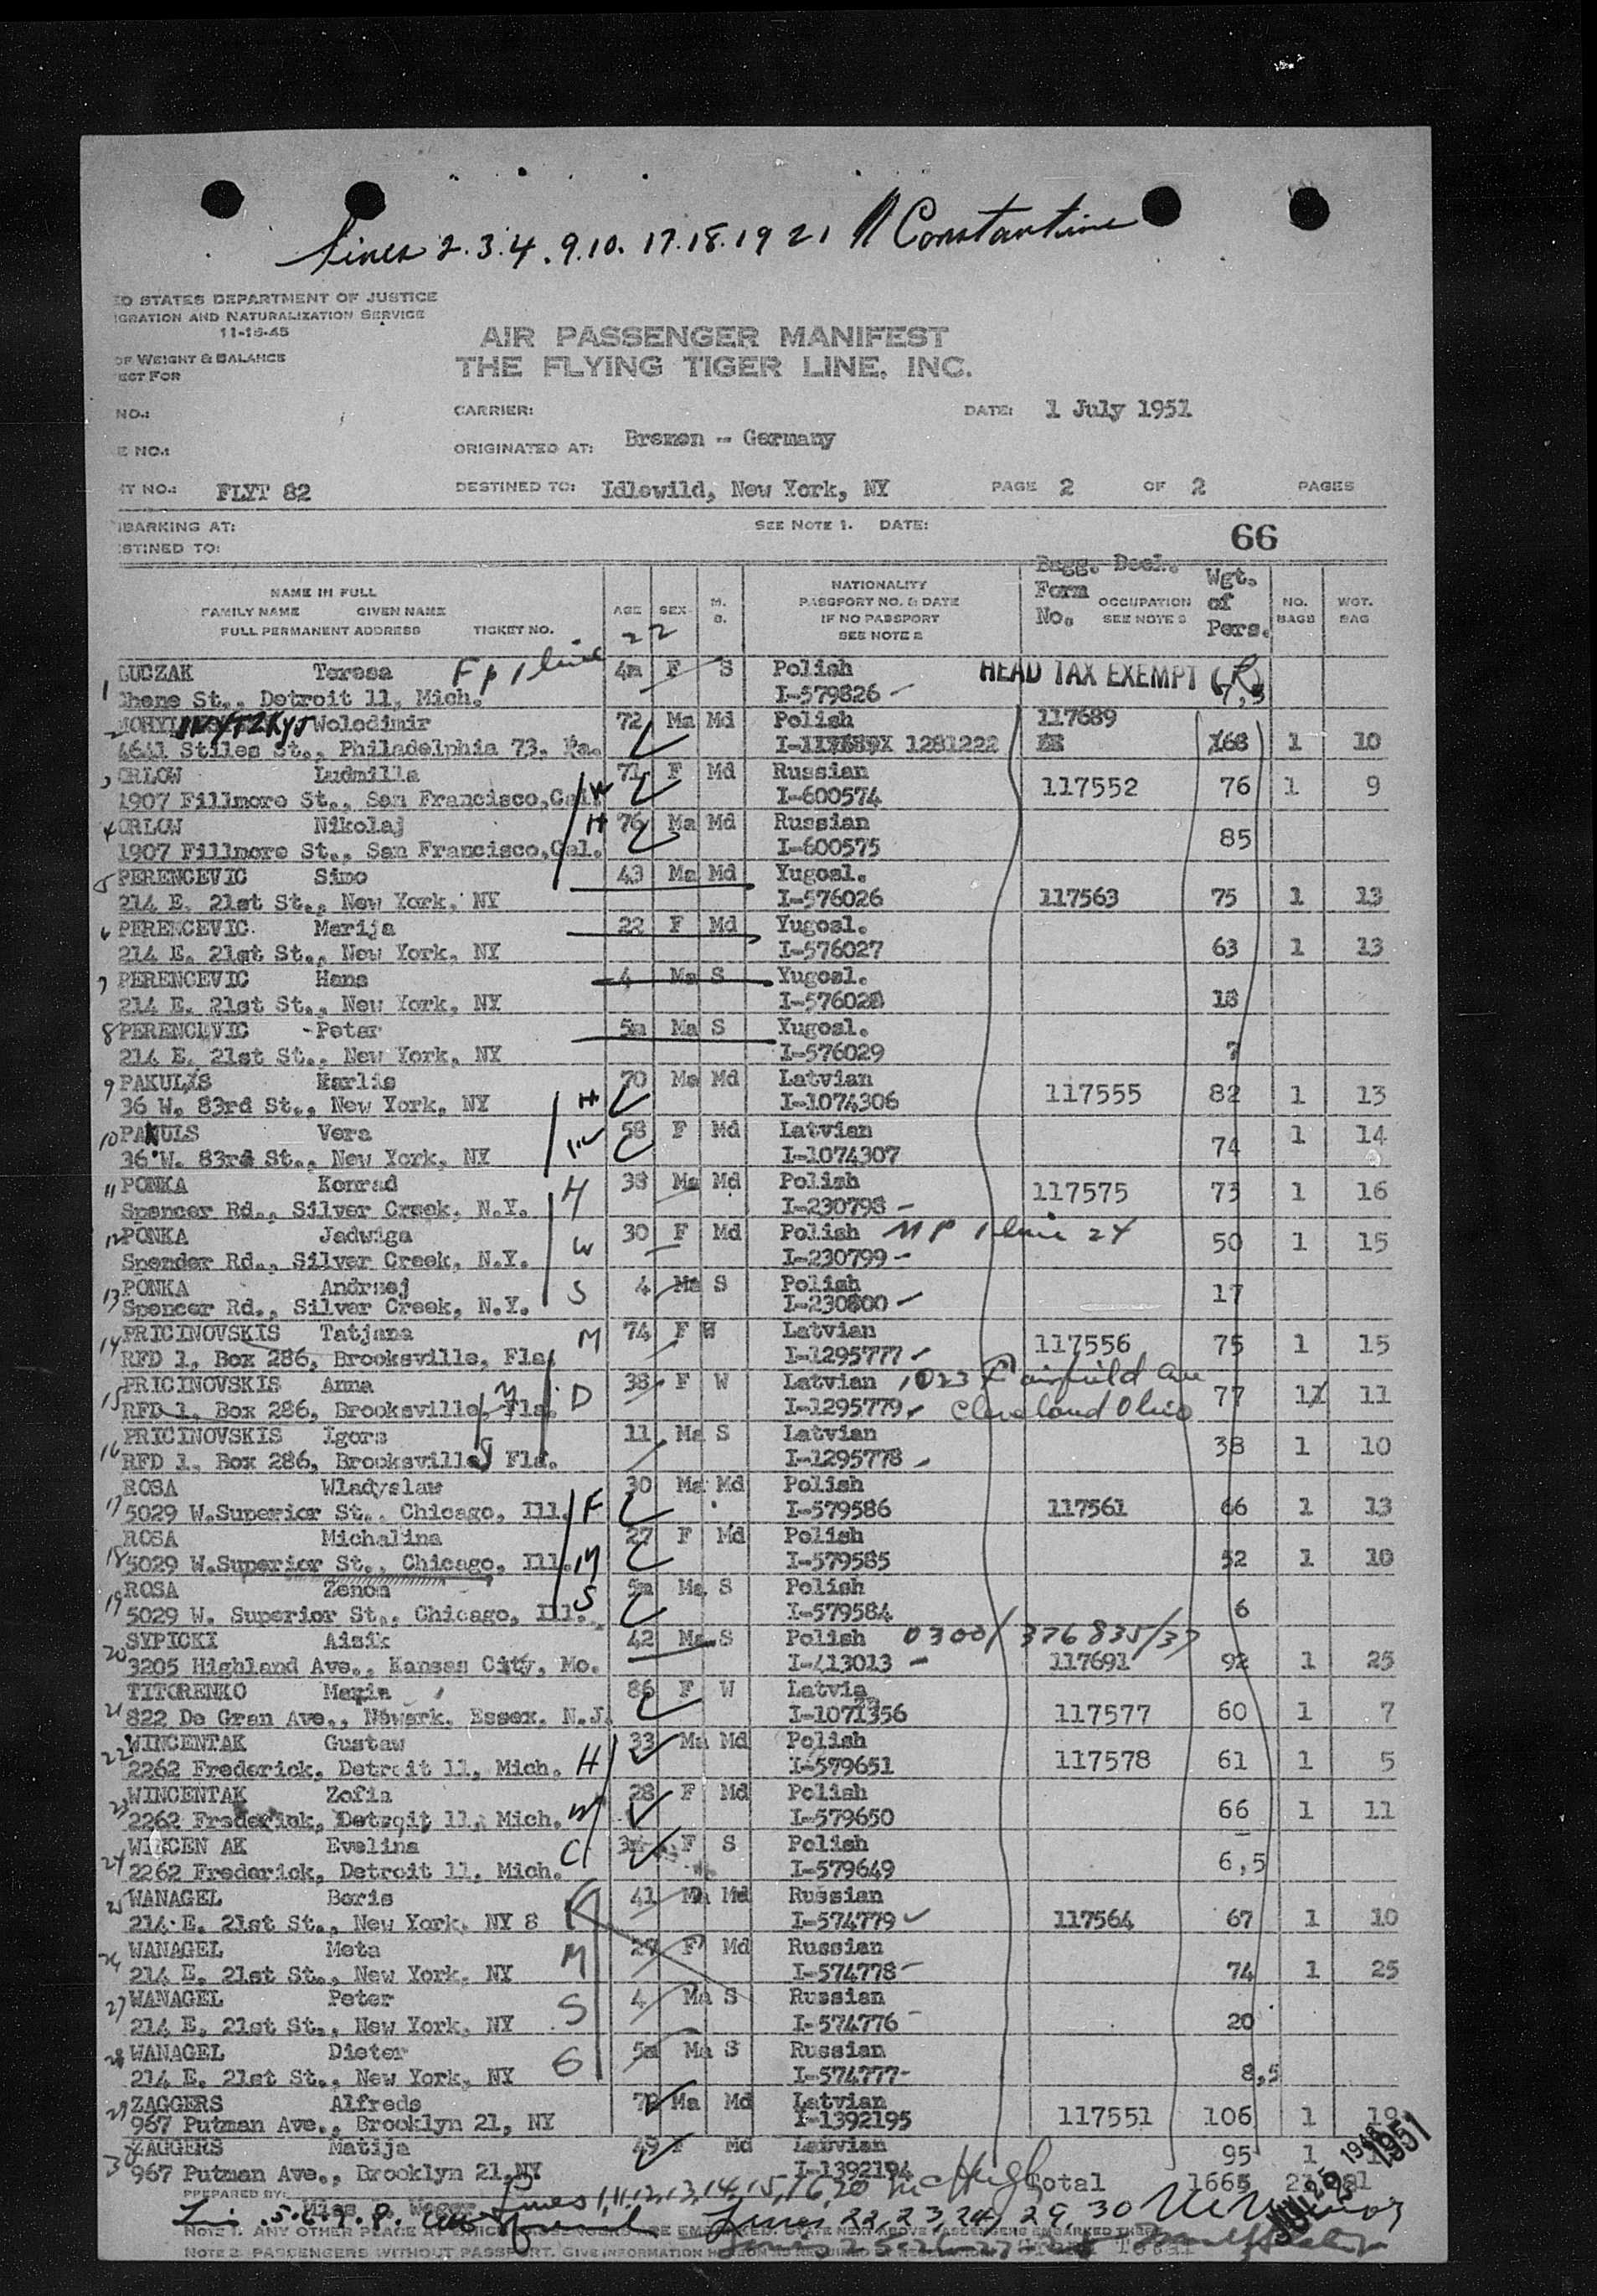 Lines 2.3.4.9.10.17.18.19 21 Constantine
ED STATES DEPARTMENT OF JUSTICE
IGRATION AND NATURALIZATION SERVICE
11-15-45
OF WEIGHT & BALANCE
ECT FOR
AIR PASSENGER MANIFEST
THE FLYING TIGER LINE, INC.
NO.: CARRIER: DATE: 1 July 1951
E NO.: ORIGINATED AT: Bremen -- Germany
HT NO.: FLYT 82 DESTINED TO: Idlewild, New York, NY PAGE 2 OF 2 PAGES
MBARKING AT: SEE NOTE 1. DATE:
STINED TO: 66
NAME IN FULL
FAMILY NAME GIVEN NAME
FULL PERMANENT ADDRESS TICKET NO. AGE SEX M. S. NATIONALITY PASSPORT NO. & DATE IF NO PASSPORT SEE NOTE 2 Bagg. Decl. Form No. OCCUPATION SEE NOTE 3 Wgt. of Pers. NO. BAGS WGT. BAG
22
1 LUCZAK Teresa 4m F S Polish HEAD TAX EXEMPT
Chene St., Detroit 11, Mich. I-579826 7,5
2 Wolodimir 72 Ma Md Polish 117689
4641 Stiles St., Philadelphia 73, Pa. 1281222 168 1 10
3 ORLOW Ludmilla W 71 F Md Russian
1907 Fillmore St., San Francisco, Cal. I-600574 117552 76 1 9
4 ORLOW Nikolaj H 76 Ma Md Russian
1907 Fillmore St., San Francisco, Cal. I-600575 85
5 PERENCEVIC Simo 43 Ma Md Yugosl.
214 E. 21st St., New York, NY I-576026 117563 75 1 13
6 PERENCEVIC Marija 22 F Md Yugosl.
214 E. 21st St., New York, NY I-576027 63 1 13
7 PERENCEVIC Hans 4 Ma S Yugosl.
214 E. 21st St., New York, NY I-576028 18
8 PERENCEVIC Peter 5m Ma S Yugosl.
214 E. 21st St., New York, NY I-576029 7
9 PAKULS Karlis 70 Ma Md Latvian
36 W. 83rd St., New York, NY H I-1074306 117555 82 1 13
10 PAKULS Vera 58 F Md Latvian
36 W. 83rd St., New York, NY W I-1074307 74 1 14
11 PONKA Konrad H 38 Ma Md Polish
Spencer Rd., Silver Creek, N.Y. I-230798 117575 73 1 16
12 PONKA Jadwiga W 30 F Md Polish
Spender Rd., Silver Creek, N.Y. I-230799 50 1 15
13 PONKA Andrzej S 4 Ma S Polish
Spencer Rd., Silver Creek, N.Y. I-230800 17
14 PRICINOVSKIS Tatjana M 74 F W Latvian
RFD 1, Box 286, Brooksville, Fla. I-1295777 117556 75 1 15
15 PRICINOVSKIS Anna D 38 F W Latvian 1023 Fairfield Ave
RFD 1, Box 286, Brooksville, Fla. I-1295779 Cleveland Ohio 77 1 11
16 PRICINOVSKIS Igors 11 Ma S Latvian
RFD 1, Box 286, Brooksville, Fla. I-1295778 38 1 10
17 ROSA Wladyslaw 30 Ma Md Polish
5029 W.Superior St., Chicago, Ill. F I-579586 117561 66 1 13
18 ROSA Michalina 27 F Md Polish
5029 W.Superior St., Chicago, Ill. M I-579585 52 1 10
19 ROSA Zenon S 5m Ma S Polish
5029 W. Superior St., Chicago, Ill. I-579584 6
20 SYPICKI Aisik 42 Ma S Polish 0300/ 376835/37
3205 Highland Ave., Kansas City, Mo. I-413013 117691 92 1 25
21 TITORENKO Maria 86 F W Latvia
822 De Gran Ave., Newark, Essex. N.J. 117577 60 1 7
22 WINCENTAK Gustaw 33 Ma Md Polish
2262 Frederick, Detroit 11, Mich. H I-579651 117578 61 1 5
23 WINCENTAK Zofia 28 F Md Polish
2262 Frederick, Detroit 11, Mich. W I-579650 66 1 11
24 WINCEN AK Evelina F S Polish
2262 Frederick, Detroit 11, Mich. C I-579649 6,5
25 WANAGEL Boris 41 Ma Md Russian
214 E. 21st St., New York, NY 8 I-574779 117564 67 1 10
26 WANAGEL Meta 27 F Md Russian
214 E. 21st St., New York, NY M I-574778 74 1 25
27 WANAGEL Peter 4 Ma S Russian
214 E. 21st St., New York, NY S I-574776 20
28 WANAGEL Dieter 5m Ma S Russian
214 E. 21st St., New York, NY S I-574777 8,5
29 ZAGGERS Alfreds 72 Ma Md Latvian
967 Putman Ave., Brooklyn 21, NY I-1392195 117551 106 1 19
30 ZAGGERS Matija 49 F Md Latvian
967 Putman Ave., Brooklyn 21, NY I-1392194 95 1
Total 1665
PREPARED BY: Miss
Lines 1,11,12,13,14,15,16,20 McHugh
Lines 22,23,24, 29, 30
1951
NOTE 1. ANY OTHER PLACE AT WHICH PASSENGERS ARE EMBARKED.
NOTE 2. PASSENGERS WITHOUT PASSPORT. GIVE INFORMATION